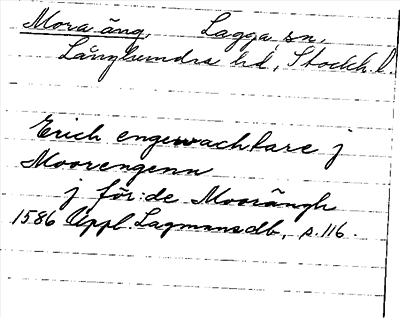 Mora äng, Lagga sn,
Långhundra hd, Stockh. l.
Erich engewachtare j
Moorengenn
j för:de Moorängh
1586 Uppl. Lagmansdb, s. 116.